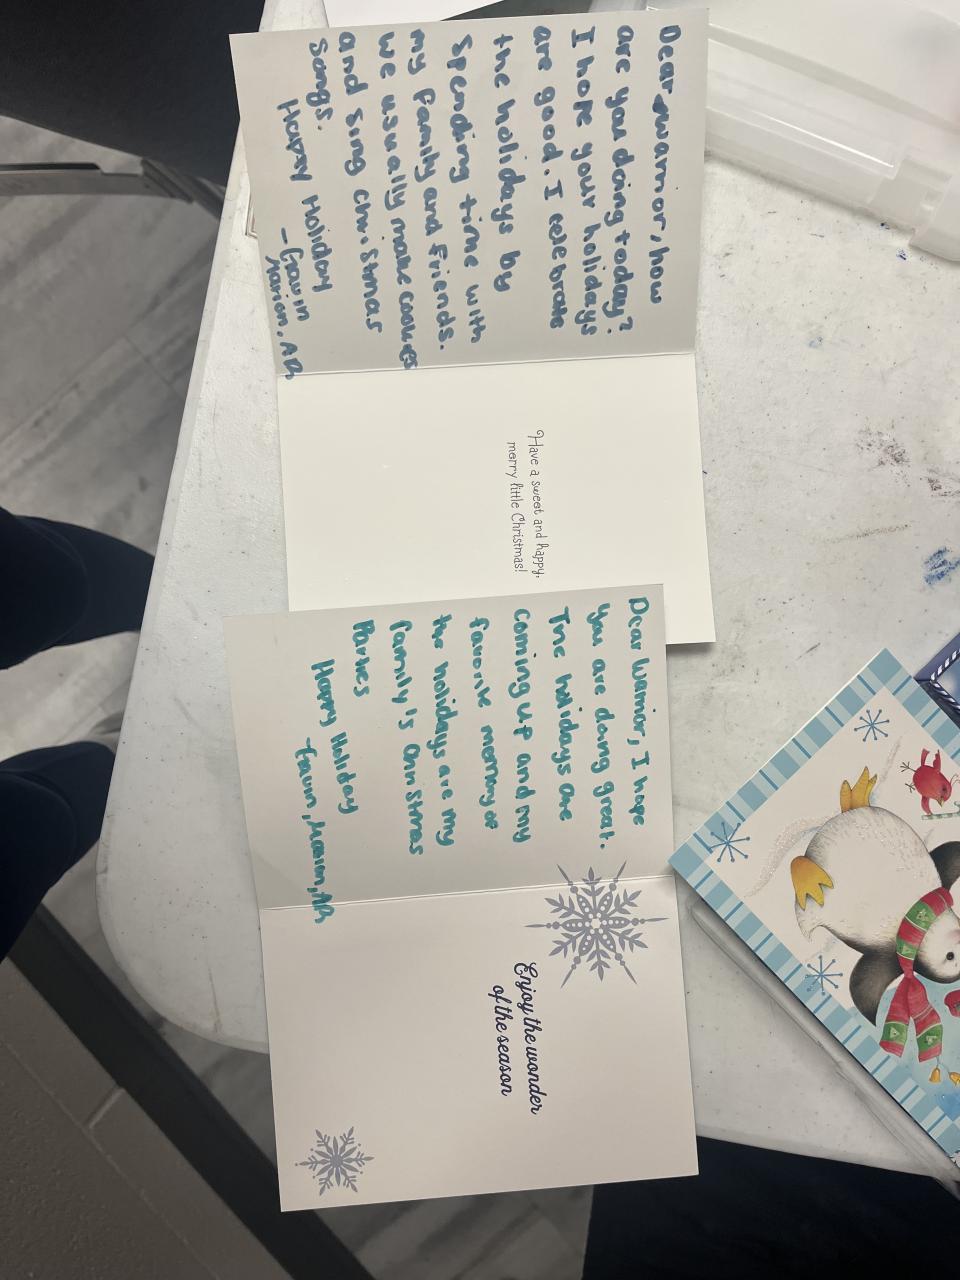 Dear warrior, how
are you doing today?
I hope your holidays
are good. I celebrate
the holidays by
Spending time with
my family and friends.
We usually make cookies
and sing christmas
songs.
Happy Holiday
- Gavin
Marion, AR
Have a sweet and happy,
merry little Christmas!
Dear Warrior, I hope
you are doing great.
The holidays are
coming up and my
favorite memory of
the holidays are my
family's Christmas
Parties
Happy Holiday
- Gavin, Marion, AR
Enjoy the wonder
of the season